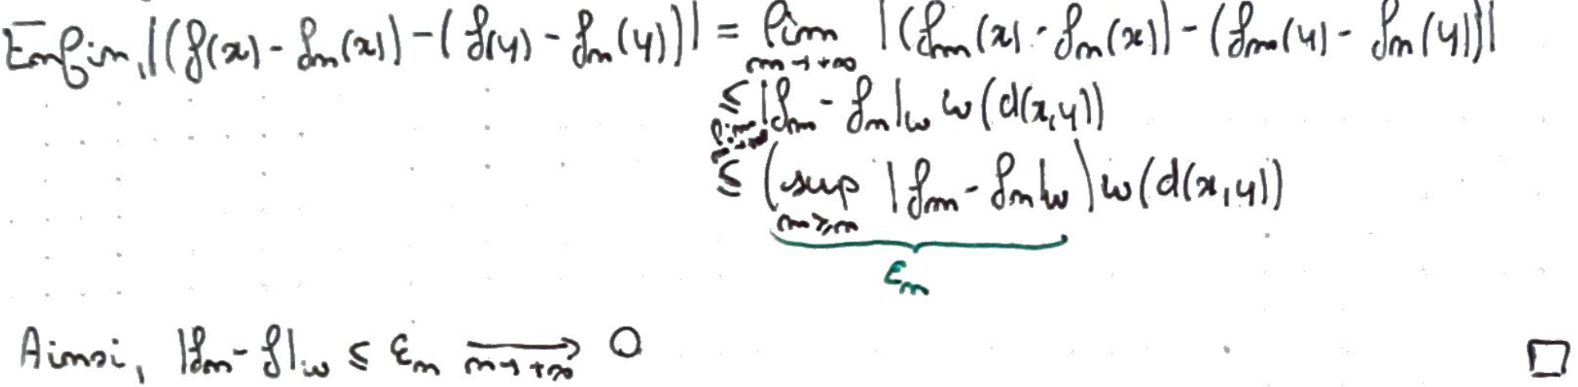 Enfin, |(f(x) - fn(x)) - (f(y) - fn(y))| = lim m→+∞ |(fm(x) - fn(x)) - (fm(y) - fn(y))|
≤ lim m→+∞ |fm - fn|ω ω(d(x,y))
≤ (sup m≥n |fm - fn|ω) ω(d(x,y))
εn
Ainsi, |fn - f|ω ≤ εn n→+∞ 0 □